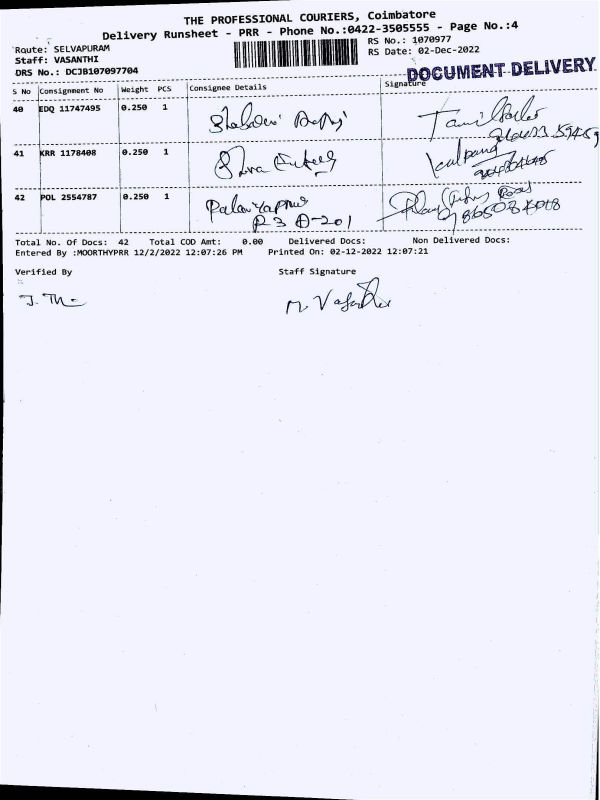 THE PROFESSIONAL COURIERS, Coimbatore
Delivery Runsheet - PRR - Phone No.:0422-3505555 - Page No.:4
Route: SELVAPURAM
RS No.: 1070977
Staff: VASANTHI
RS Date: 02-Dec-2022
DRS No.: DCJB107097704
DOCUMENT DELIVERY
S No Consignment No Weight PCS Consignee Details Signature
40 EDQ 11747495 0.250 1
41 KRR 1178408 0.250 1
42 POL 2554787 0.250 1
R3 A-201
Total No. Of Docs: 42 Total COD Amt: 0.00 Delivered Docs: Non Delivered Docs:
Entered By :MOORTHYPRR 12/2/2022 12:07:26 PM Printed On: 02-12-2022 12:07:21
Verified By Staff Signature
M. Vasanthi